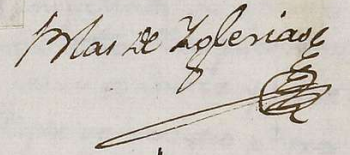 Blas de Yglesias